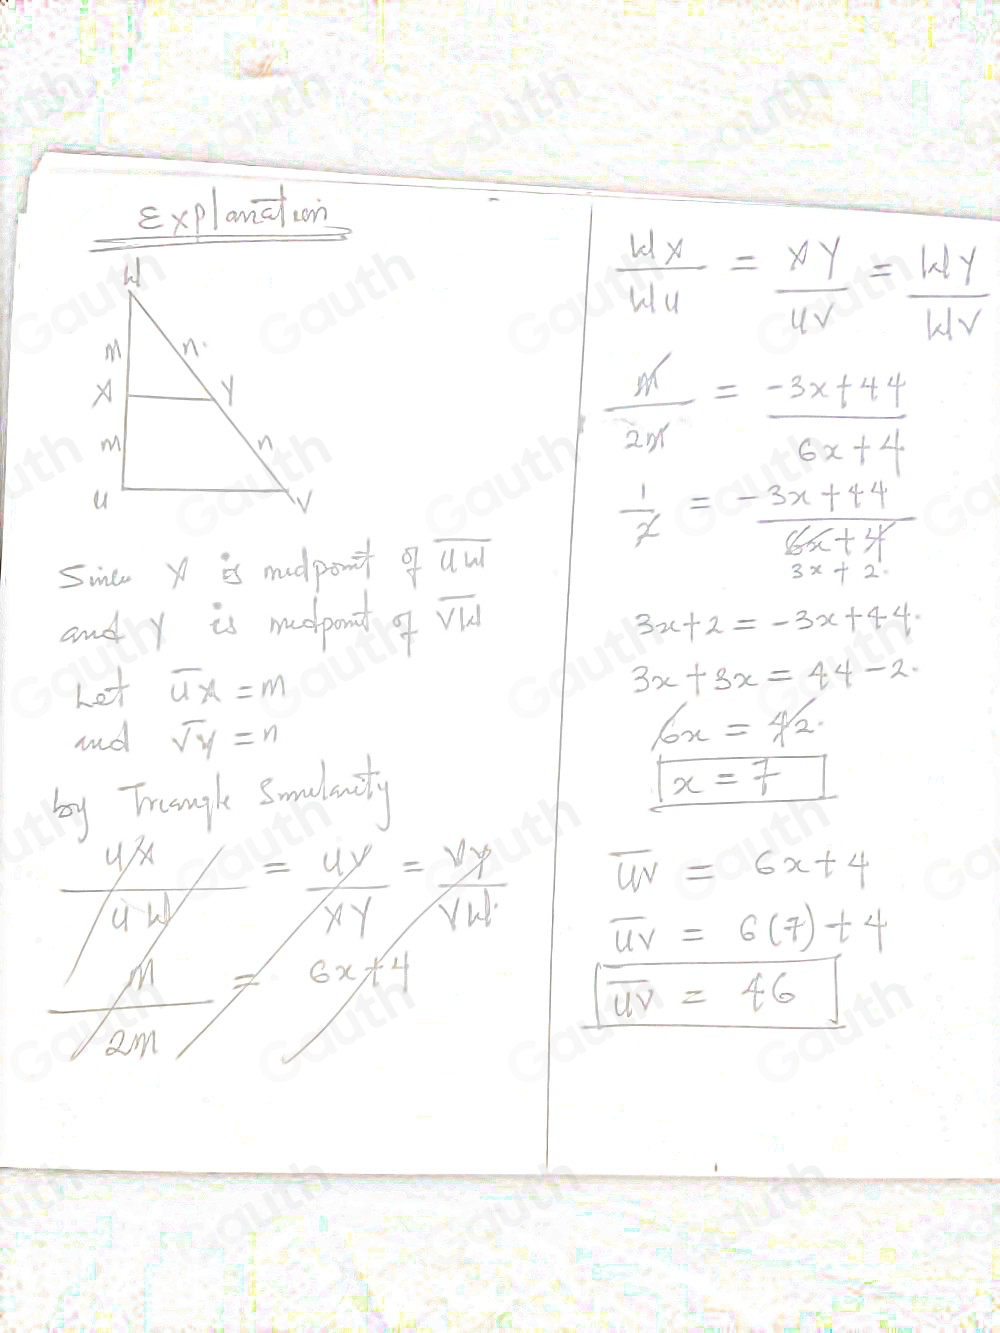 Explanation
W
m
n
X
Y
m
n
U
V
Since X is midpoint of UW
and Y is midpoint of VW
Let UX = m
and VY = n
by Triangle Similarity
UX/UW = UV/XY = VY/VW
m/2m = 6x+4
WX/WU = XY/UV = WY/WV
m/2m = -3x+44/6x+4
1/2 = -3x+44/6x+4
3x+2
3x+2 = -3x+44
3x+3x = 44-2
6x = 42
x = 7
UV = 6x+4
UV = 6(7)+4
UV = 46
Gauth